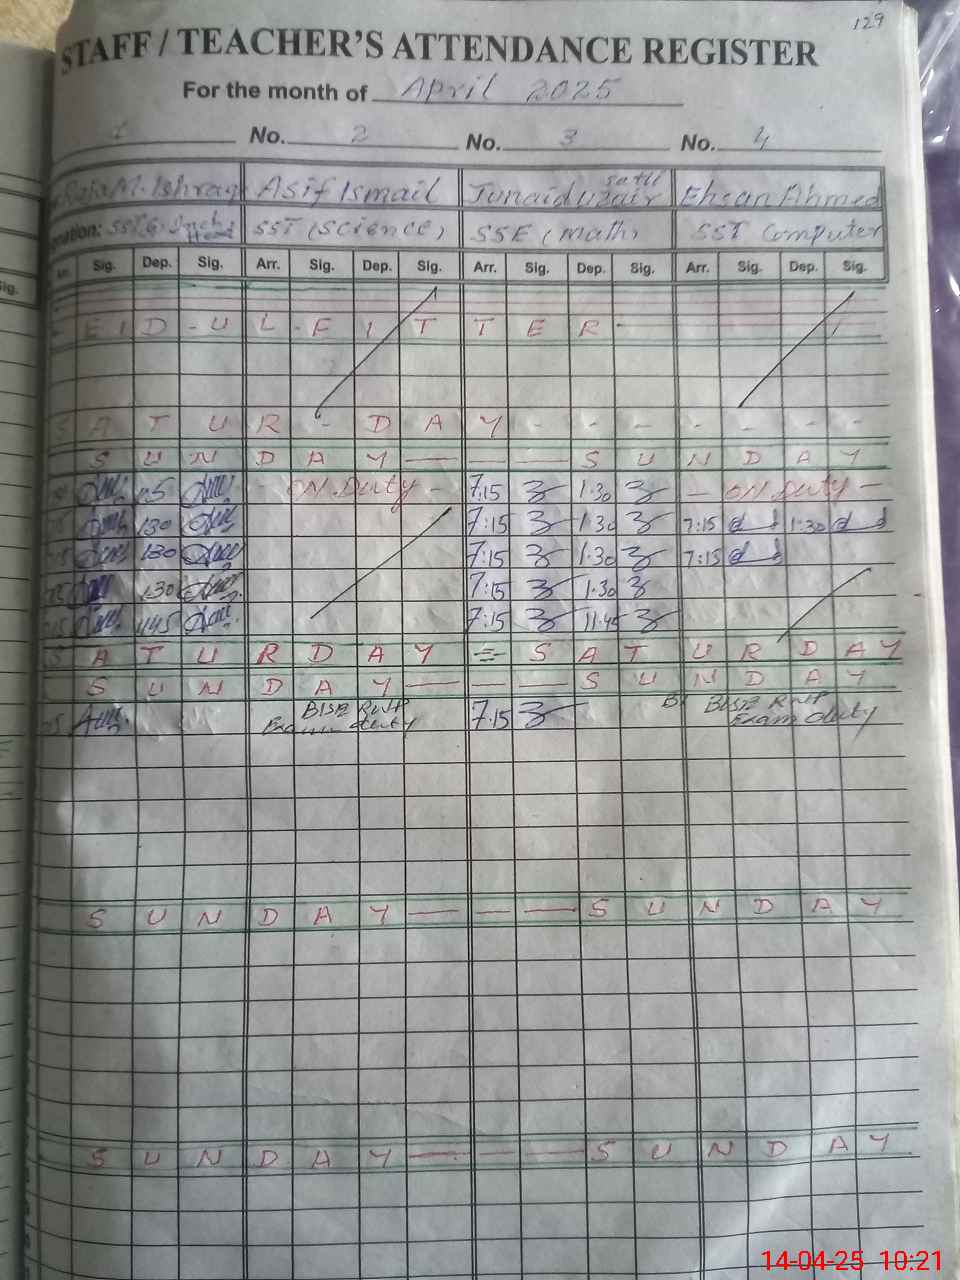 129
STAFF / TEACHER'S ATTENDANCE REGISTER
For the month of April 2025
1 No. 2 No. 3 No. 4
Raja M. Ishraq Asif Ismail Junaid Uzair Satti Ehsan Ahmed
nation: SST(G) Inch: Head SST (Science) SSE (Math) SST Computer
Sig. Arr. Sig. Dep. Sig. Arr. Sig. Dep. Sig. Arr. Sig. Dep. Sig. Arr. Sig. Dep. Sig.
- EID-UL-FITTER -
SATUR-DAY - - - - - - -
SUNDAY — — — SUNDAY
- ON Duty - 7:15 1:30 - ON Duty -
130 7:15 1:30 7:15 1:30
130 7:15 1:30 7:15
130 7:15 1:30
1145 7:15 11:45
SATURDAY = SATURDAY
SUNDAY — — — SUNDAY
BISE RWP Exam duty 7:15 B. BISE RWP Exam duty
SUNDAY — — — SUNDAY
SUNDAY — — — SUNDAY
14-04-25 10:21